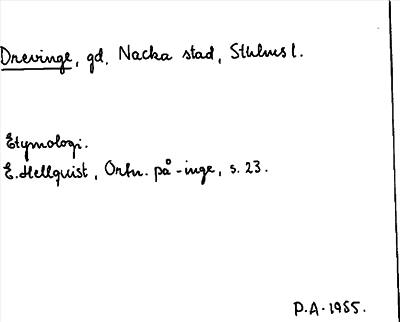 Drevinge, gd, Nacka stad, Sthlms l.
Etymologi.
E. Hellquist, Ortn. på -inge, s. 23.
P.A. 1955.